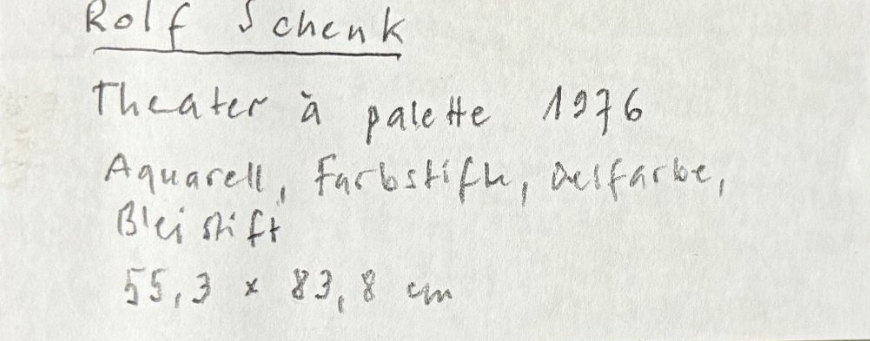 Rolf Schenk
Theater à palette 1976
Aquarell, Farbstifte, Oelfarbe,
Bleistift
55,3 x 83,8 cm